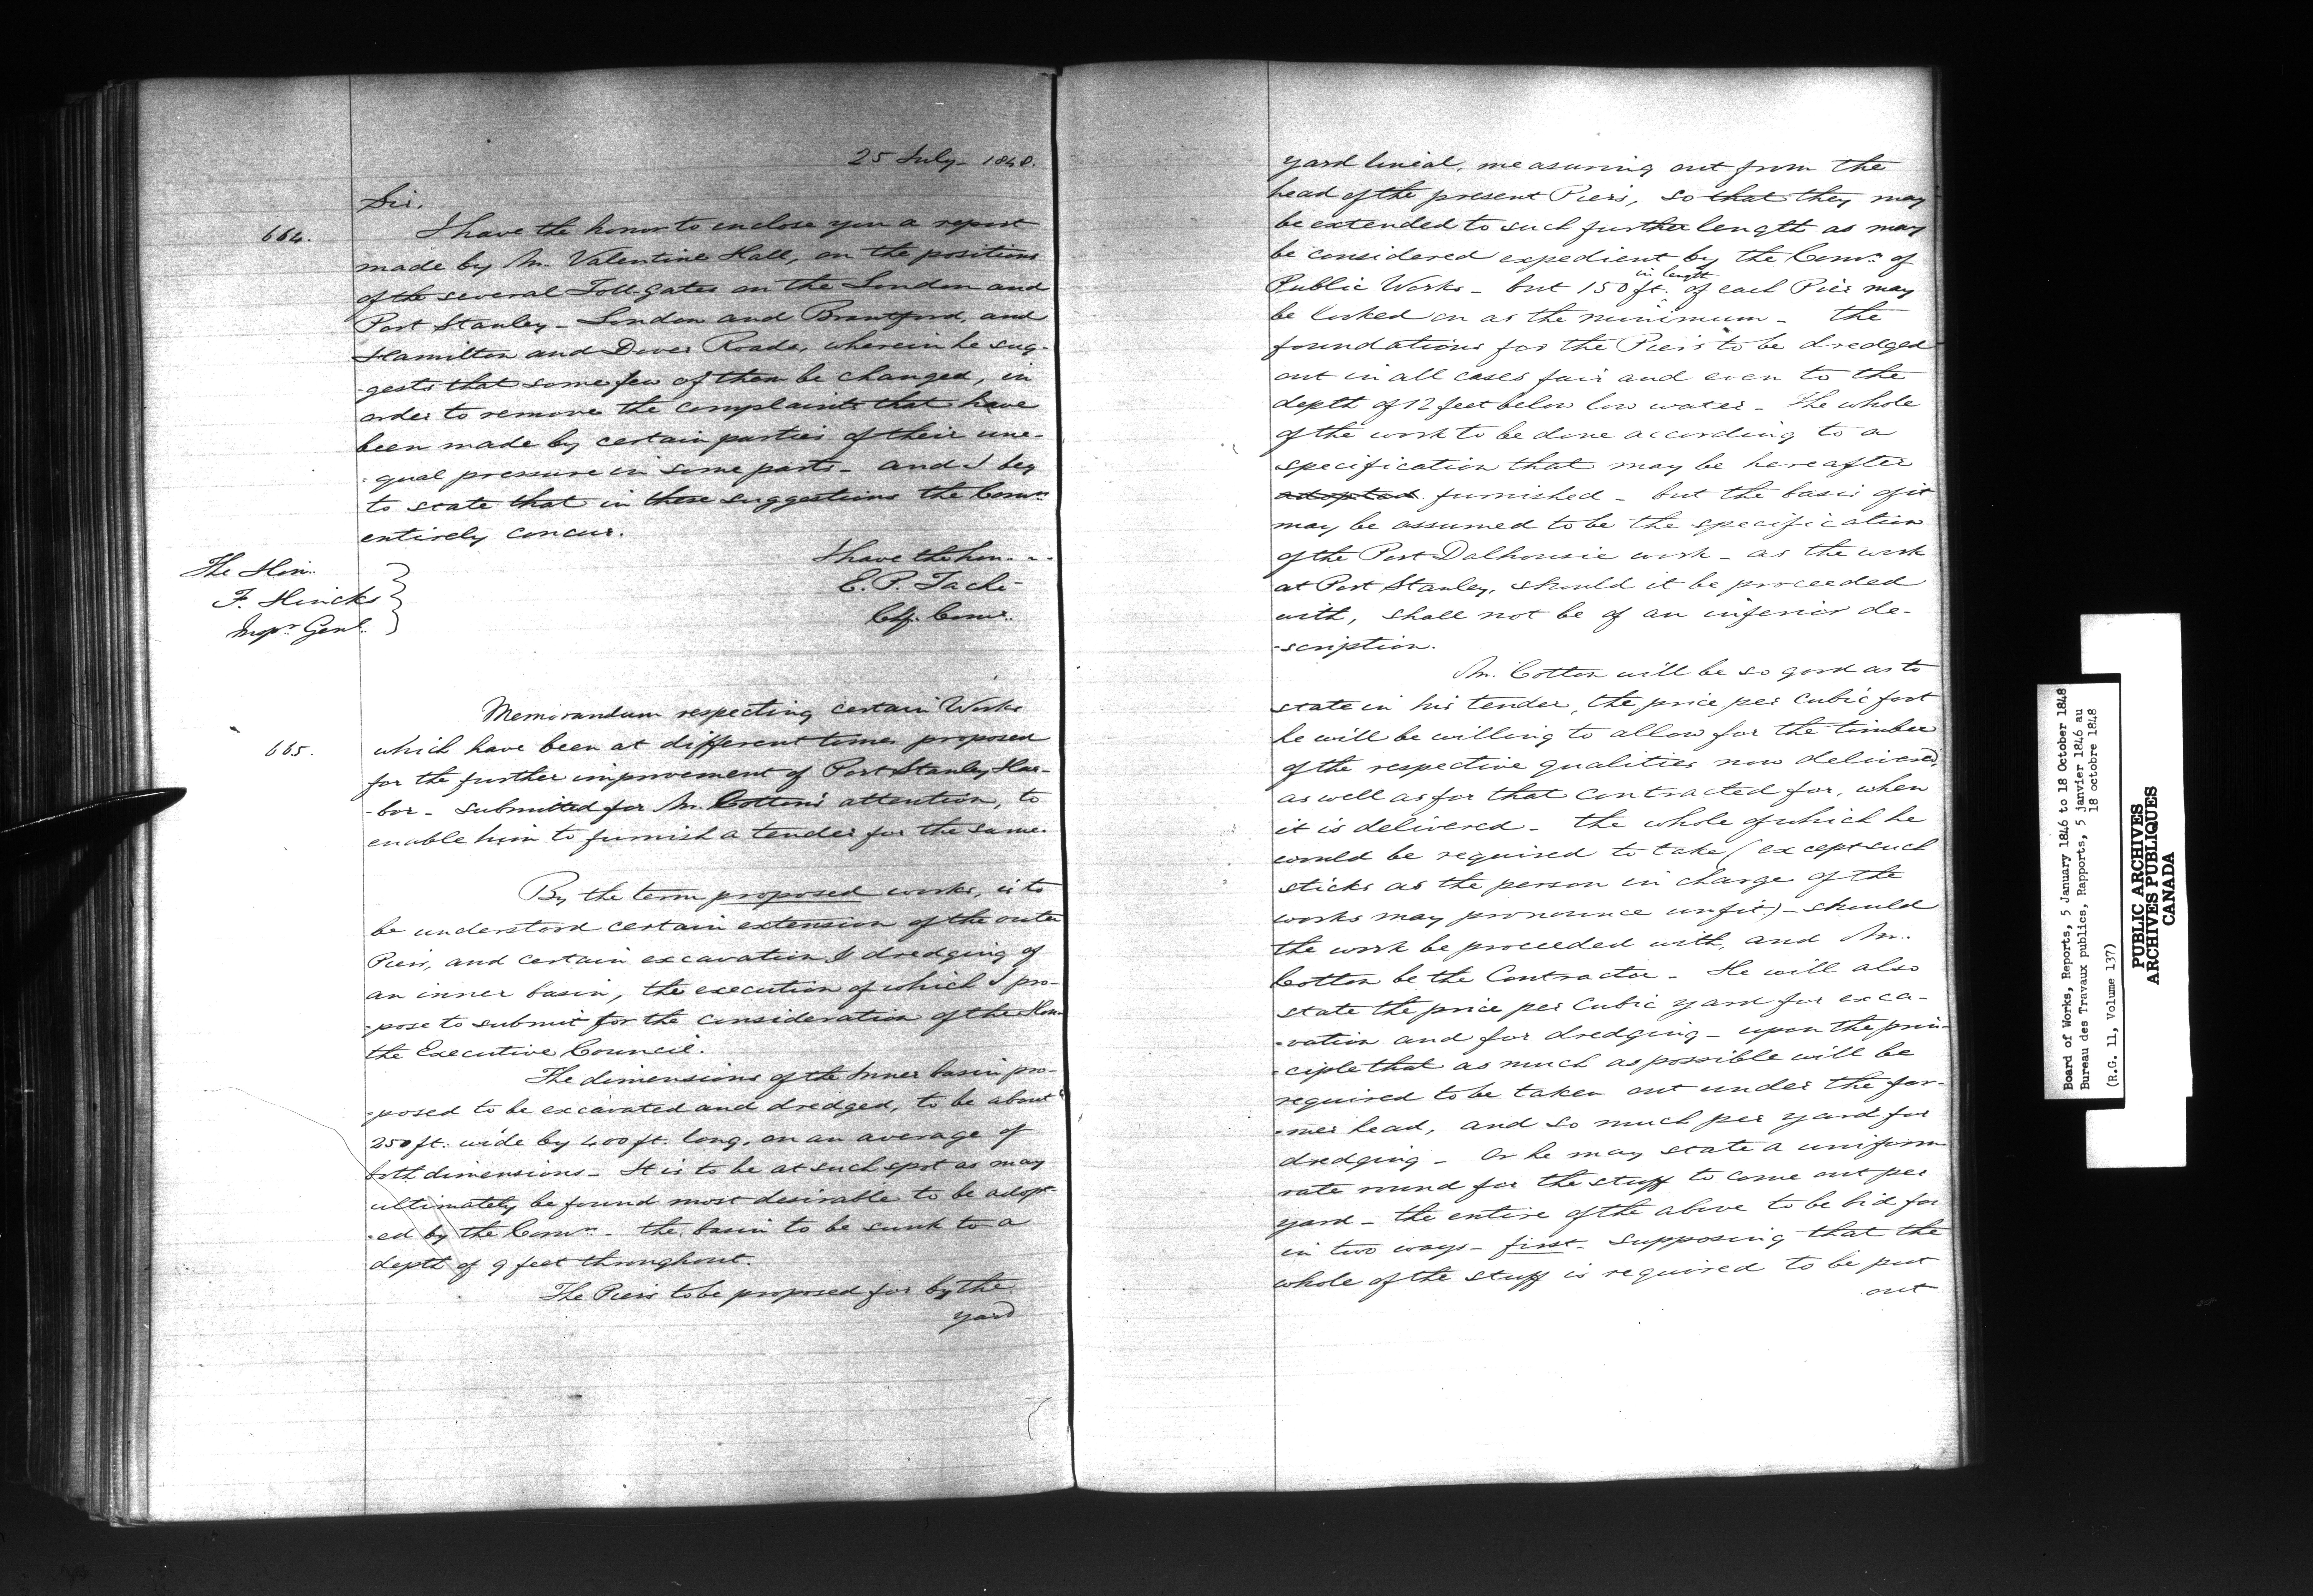 25 July - 1848.
Sir,
664.
I have the honor to enclose you a report
made by Mr. Valentine Hall, on the positions
of the several Toll-gates on the London and
Port Stanley - London and Brantford, and
Hamilton and Dover Roads, wherein he sug-
-gests that some few of them be changed, in
order to remove the complaints that have
been made by certain parties of their une-
-qual pressure in some parts - and I beg
to state that in these suggestions the Comrs.
entirely concur.
I have the hon...
E. P. Taché
Chf. Comr.
The Hon.
F. Hincks
Inspr. Genl.
Memorandum respecting certain Works
665.
which have been at different times proposed
for the further improvement of Port Stanley Har-
-bor - submitted for Mr. Cotton's attention, to
enable him to furnish a tender for the same.
By the term proposed works, is to
be understood certain extension of the outer
Piers, and certain excavation & dredging of
an inner basin, the execution of which I pro-
-pose to submit for the consideration of the Hon.
the Executive Council.
The dimensions of the Inner basin pro-
-posed to be excavated and dredged, to be about
250 ft. wide by 400 ft. long, on an average of
both dimensions - It is to be at such spot as may
ultimately be found most desirable to be adopt-
-ed by the Comrs. - the basin to be sunk to a
depth of 9 feet throughout.
The Piers to be proposed for by the
yard
yard lineal, measuring out from the
head of the present Piers, so that they may
be extended to such further length as may
be considered expedient by the Comrs. of
Public Works - but 150 ft. in length of each Pier may
be looked on as the minimum - the
foundations for the Piers to be dredged
out in all cases fair and even to the
depth of 12 feet below low water - The whole
of the work to be done according to a
specification that may be hereafter
adopted furnished - but the basis of it
may be assumed to be the specification
of the Port Dalhousie work - as the work
at Port Stanley, should it be proceeded
with, shall not be of an inferior de-
-scription.
Mr. Cotton will be so good as to
state in his tender, the price per cubic foot
he will be willing to allow for the timber
of the respective qualities now delivered,
as well as for that contracted for, when
it is delivered - the whole of which he
would be required to take (except such
sticks as the person in charge of the
works may pronounce unfit) - should
the work be proceeded with, and Mr.
Cotton be the Contractor - He will also
state the price per Cubic yard for exca-
-vation and for dredging - upon the prin-
-ciple that as much as possible will be
required to be taken out under the for-
-mer head, and so much per yard for
dredging - Or he may state a uniform
rate round for the stuff to come out per
yard - the entire of the above to be bid for
in two ways - first - supposing that the
whole of the stuff is required to be put
out
Board of Works, Reports, 5 January 1846 to 18 October 1848
Bureau des Travaux publics, Rapports, 5 janvier 1846 au
18 octobre 1848
(R.G. 11, Volume 137)
PUBLIC ARCHIVES
ARCHIVES PUBLIQUES
CANADA